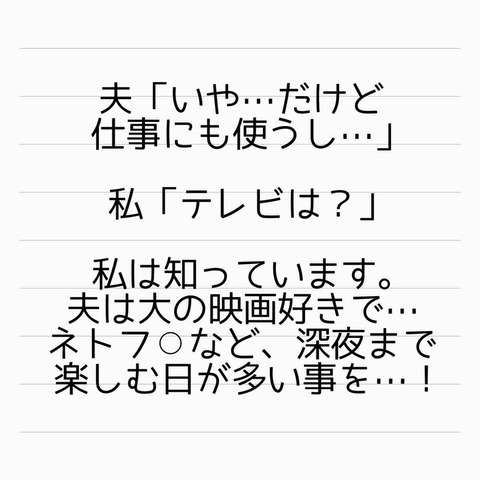 夫「いや…だけど
仕事にも使うし…」
私「テレビは？」
私は知っています。
夫は大の映画好きで…
ネトフ○など、深夜まで
楽しむ日が多い事を…！